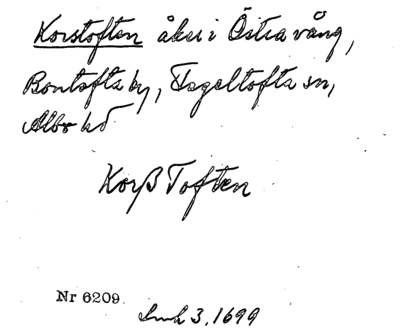 Korstoften åker i Östra vång,
Bontofta by, Fageltofta sn,
Albo hd
Korß Toften
Nr 6209.
Lmk 3, 1699